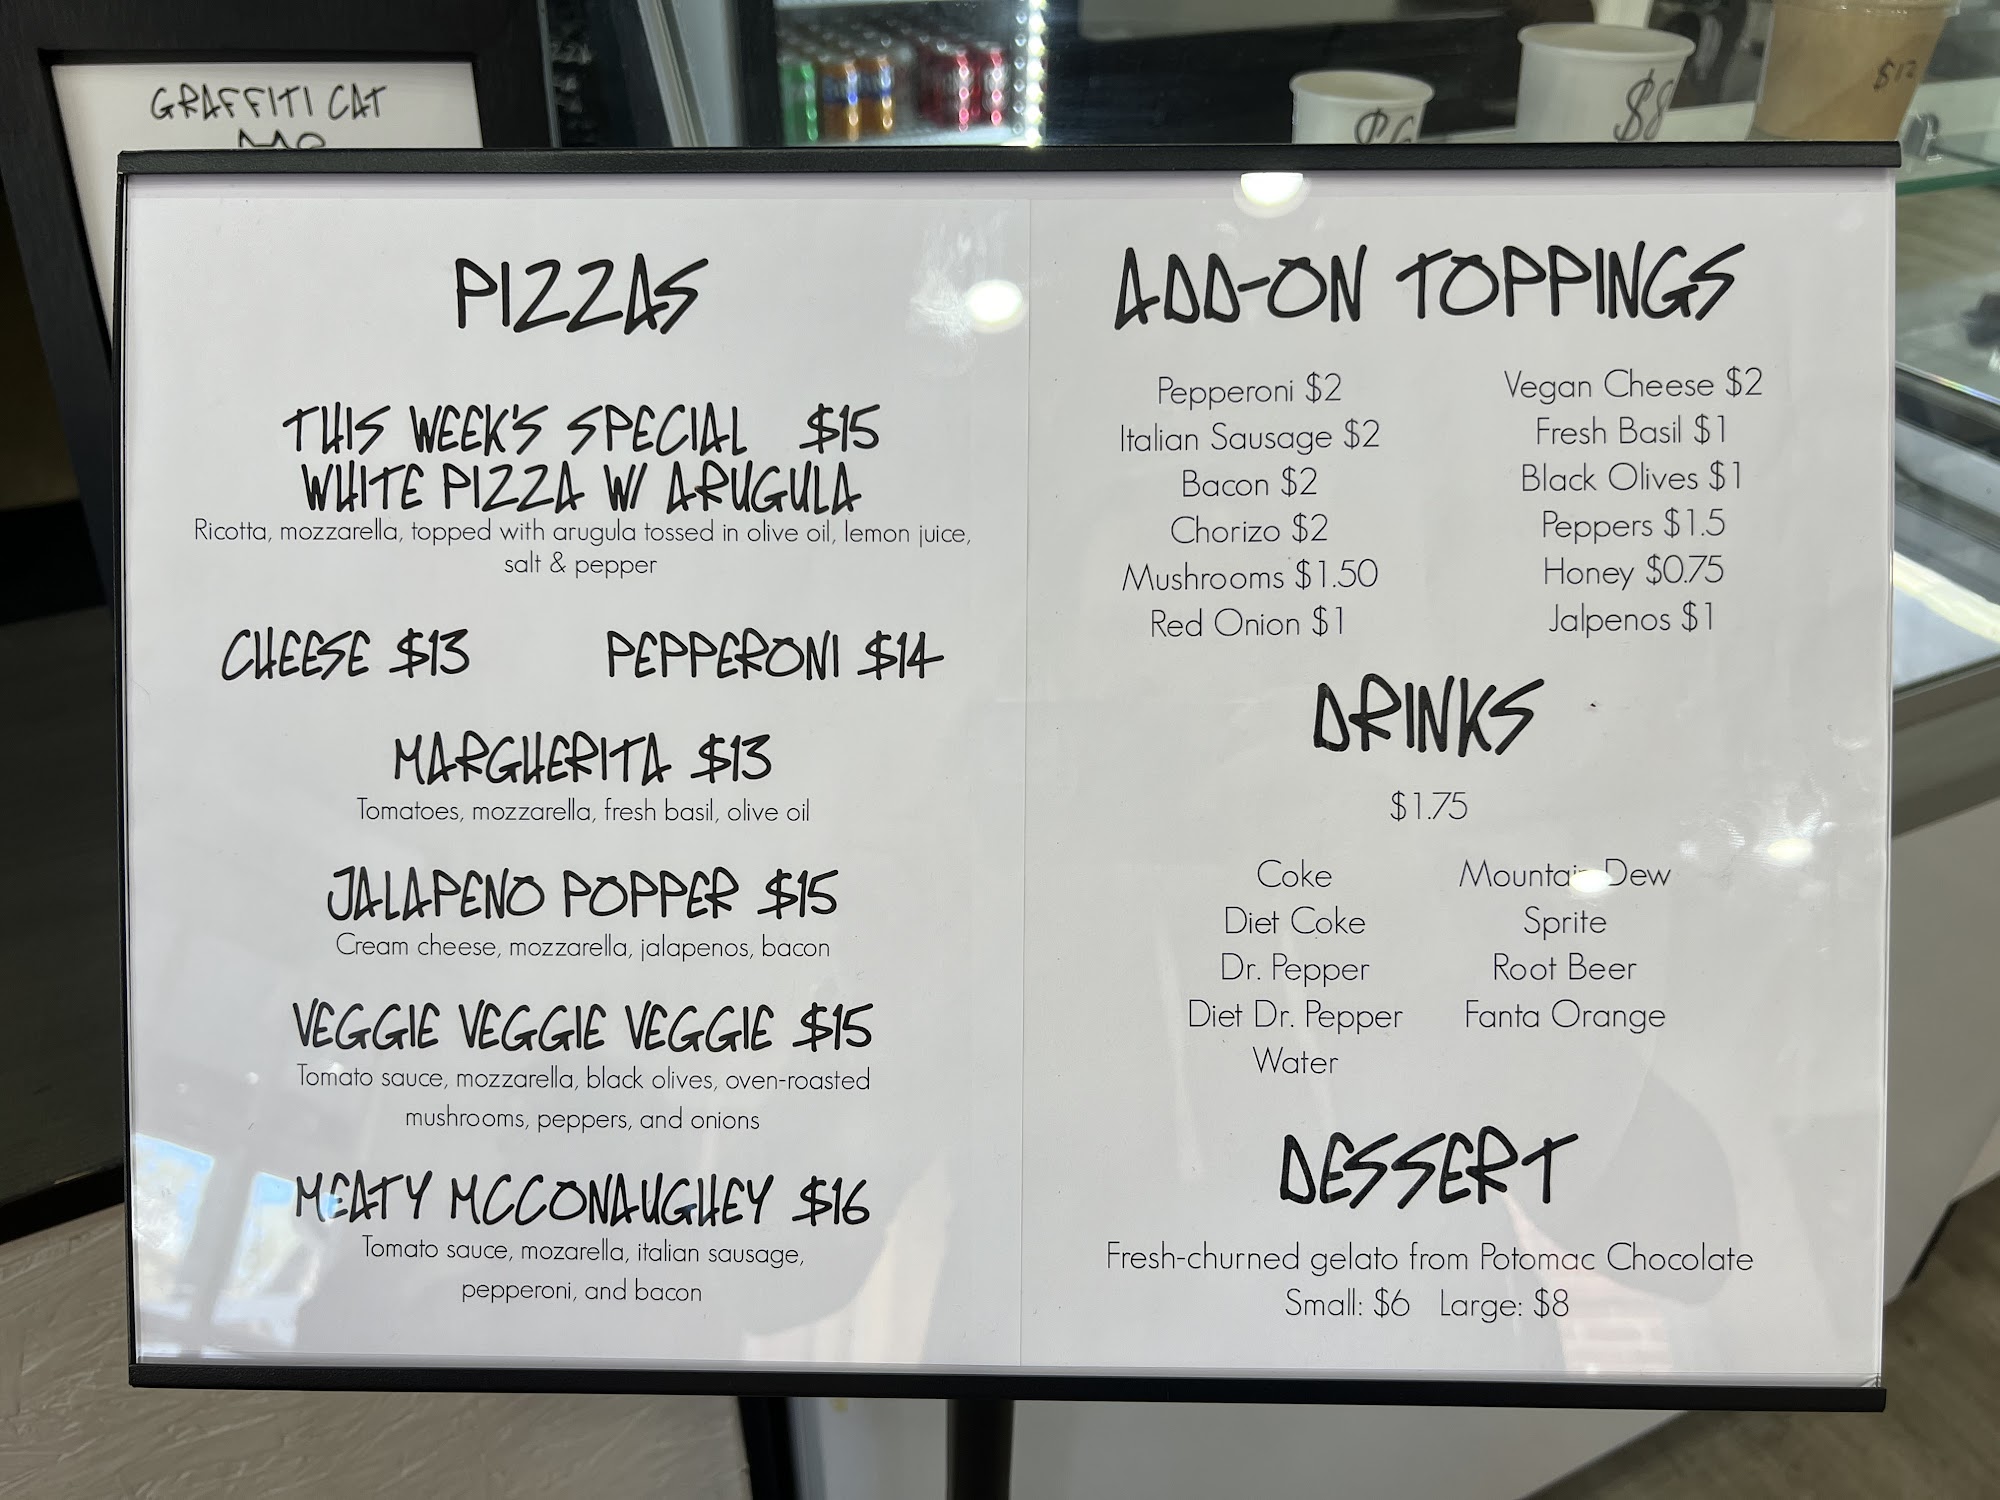 GRAFFITI CAT
$8
$12
PIZZAS
THIS WEEK'S SPECIAL $15
WHITE PIZZA W/ ARUGULA
Ricotta, mozzarella, topped with arugula tossed in olive oil, lemon juice,
salt & pepper
CHEESE $13 PEPPERONI $14
MARGHERITA $13
Tomatoes, mozzarella, fresh basil, olive oil
JALAPENO POPPER $15
Cream cheese, mozzarella, jalapenos, bacon
VEGGIE VEGGIE VEGGIE $15
Tomato sauce, mozzarella, black olives, oven-roasted
mushrooms, peppers, and onions
MEATY MCCONAUGHEY $16
Tomato sauce, mozarella, italian sausage,
pepperoni, and bacon
ADD-ON TOPPINGS
Pepperoni $2
Italian Sausage $2
Bacon $2
Chorizo $2
Mushrooms $1.50
Red Onion $1
Vegan Cheese $2
Fresh Basil $1
Black Olives $1
Peppers $1.5
Honey $0.75
Jalpenos $1
DRINKS
$1.75
Coke
Diet Coke
Dr. Pepper
Diet Dr. Pepper
Water
Mountain Dew
Sprite
Root Beer
Fanta Orange
DESSERT
Fresh-churned gelato from Potomac Chocolate
Small: $6 Large: $8